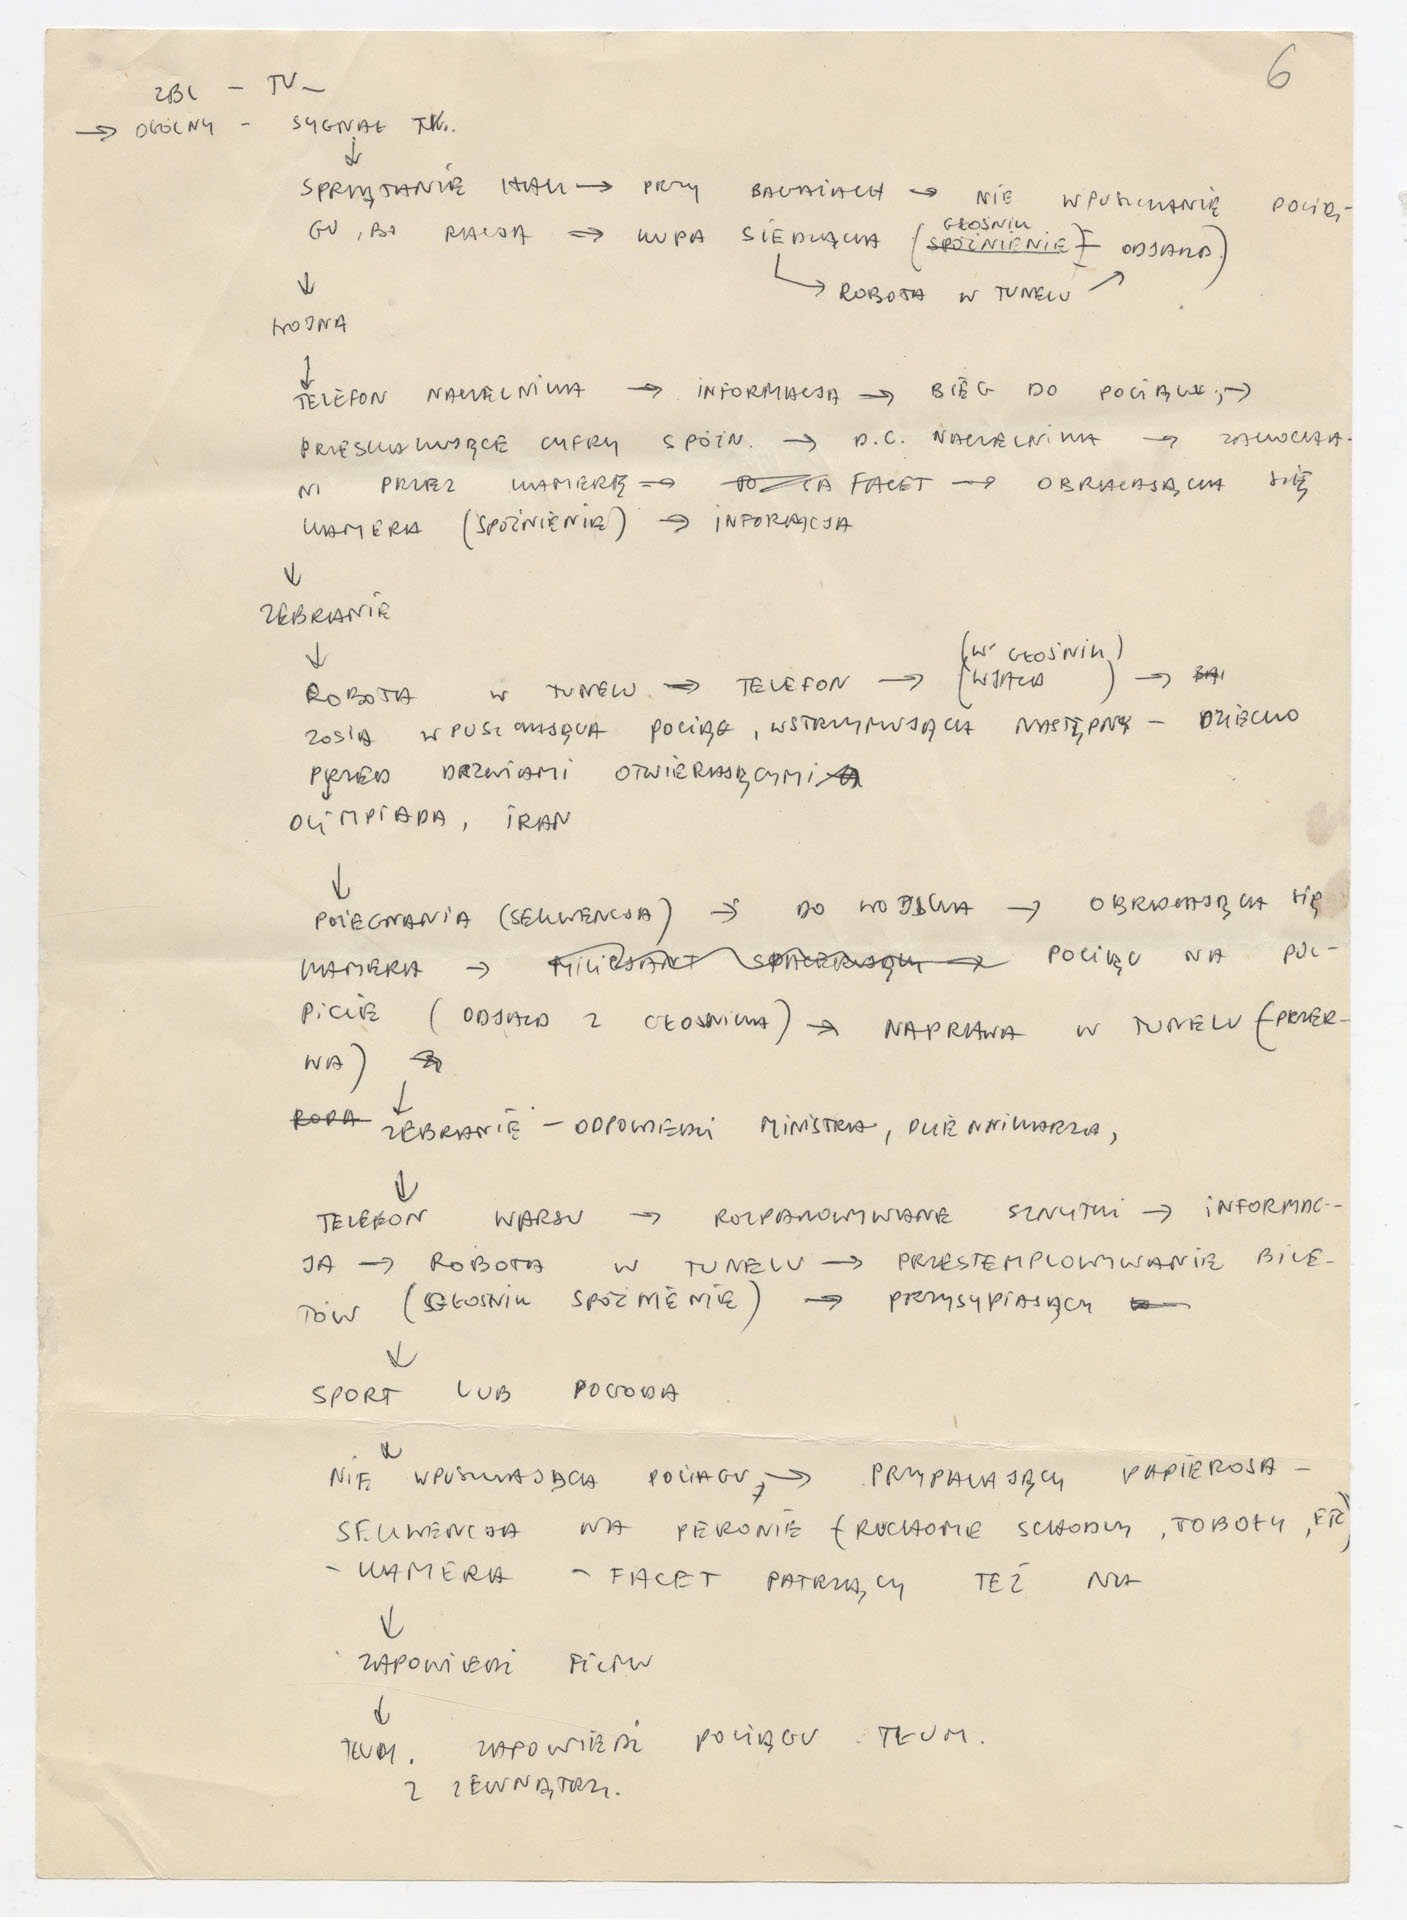 6
ZBL - TV -
→ OGÓLNY - SYGNAŁ TV.
↓
SPRZĄTANIE HALI → PRZY BAGAŻACH → NIE WPUSZCZANIE POCIĄ-
GŁOŚNIK
GU, BO RACJA → KUPA SIEDZĄCA (SPÓŹNIENIE - ODJAZD)
↳ ROBOTA W TUNELU ↗
↓
WOJNA
↓
TELEFON NACZELNIKA → INFORMACJA → BIEG DO POCIĄGU, →
PRZESKAKUJĄCE CYFRY SPÓŹN. → D.C. NACZELNIKA → ZAKOCHA-
NI PRZEZ KAMERĘ → FACET → OBRACAJĄCA SIĘ
KAMERA (SPÓŹNIENIE) → INFORMACJA
↓
ZEBRANIE
↓
(W GŁOŚNIK)
ROBOTA W TUNELU → TELEFON → (WJAZD) →
ZOSIA WPUSZCZAJĄCA POCIĄG, WSTRZYMUJĄCA NASTĘPNY - DZIECKO
PRZED DRZWIAMI OTWIERAJĄCYMI
OLIMPIADA, IRAN
↓
POŻEGNANIA (SEKWENCJA) → DO WOJSKA → OBRACAJĄCA SIĘ
KAMERA → MILICJANT SPACERUJĄCY → POCIĄG NA PUL-
PICIE (ODJAZD Z GŁOŚNIKA) → NAPRAWA W TUNELU (PRZER-
WA)
↓
ZEBRANIE - ODPOWIEDZI MINISTRA, DZIENNIKARZA,
↓
TELEFON WARSU → ROZPAKOWYWANIE SZNYTKI → INFORMAC-
JA → ROBOTA W TUNELU → PRZESTEMPLOWYWANIE BILE-
TÓW (GŁOŚNIK SPÓŹNIENIE) → PRZYSYPIAJĄCY
↓
SPORT LUB POGODA
↓
NIE WPUSZCZAJĄCA POCIAGU, → PRZYPALAJĄCY PAPIEROSA -
SEKWENCJA NA PERONIE (RUCHOME SCHODY, TOBOŁY,
- KAMERA - FACET PATRZĄCY TEŻ NA
↓
ZAPOWIEDZI FILMU
↓
TŁUM. ZAPOWIEDŹ POCIĄGU. TŁUM.
Z ZEWNĄTRZ.